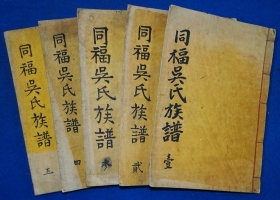 同福吳氏族譜 壹
同福吳氏族譜 貳
同福吳氏族譜 叁
同福吳氏族譜 四
同福吳氏族譜 五